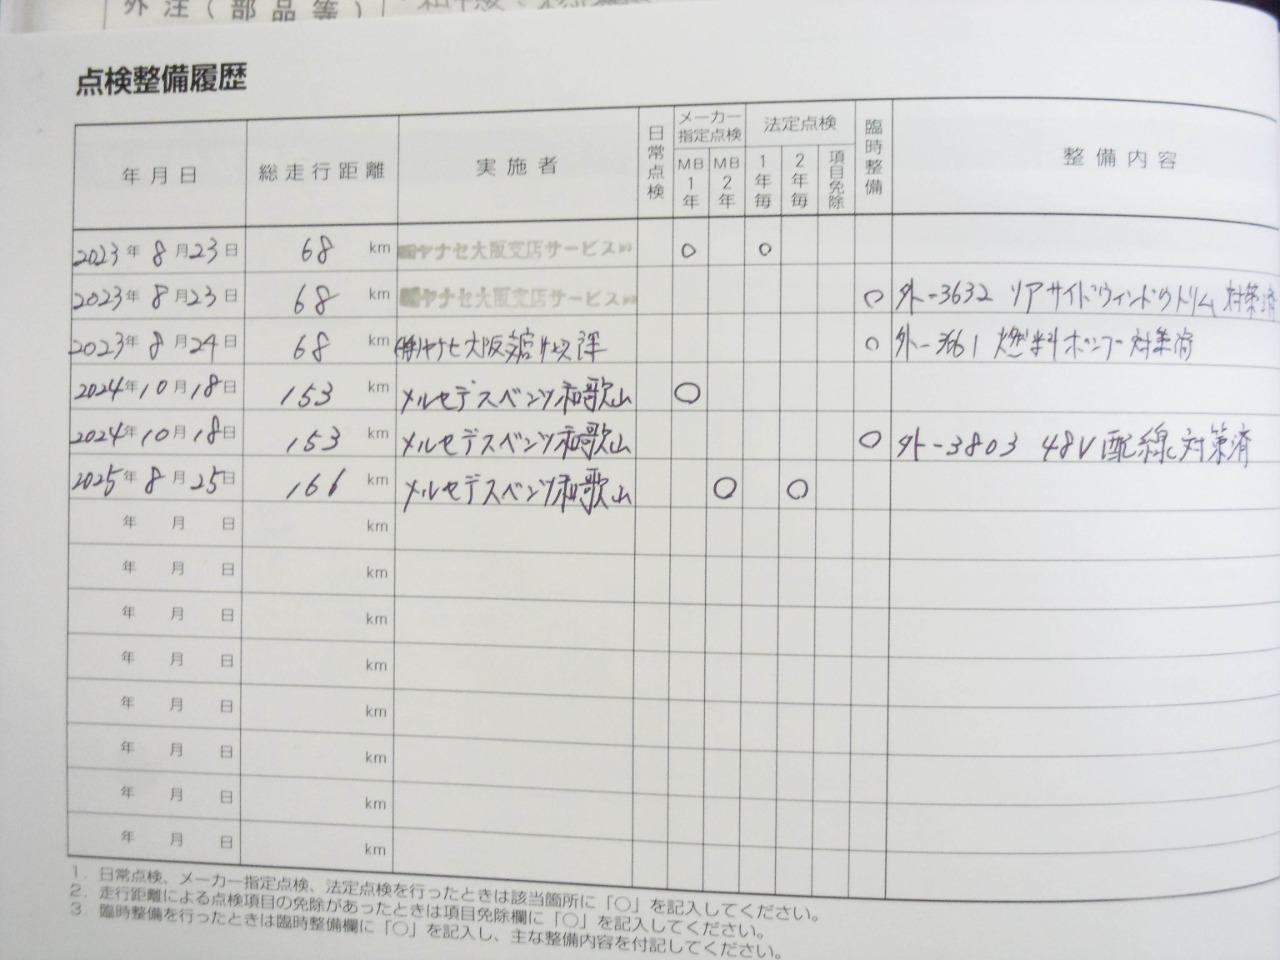 外注(部品等)
点検整備履歴
年月日 総走行距離 実施者 日常点検 メーカー指定点検 MB1年 MB2年 法定点検 1年毎 2年毎 項目免除 臨時整備 整備内容
2023年8月23日 68 km ヤナセ大阪支店サービス ○ ○
2023年8月23日 68 km ヤナセ大阪支店サービス ○ 外-3632 リアサイドウィンドウトリム 対策済
2023年8月24日 68 km (株)ヤナセ大阪 ○ 外-3661 燃料ポンプ対策済
2024年10月18日 153 km メルセデスベンツ和歌山 ○
2024年10月18日 153 km メルセデスベンツ和歌山 ○ 外-3803 48V配線対策済
2025年8月25日 166 km メルセデスベンツ和歌山 ○ ○
年 月 日 km
年 月 日 km
年 月 日 km
年 月 日 km
年 月 日 km
年 月 日 km
年 月 日 km
年 月 日 km
1. 日常点検、メーカー指定点検、法定点検を行ったときは該当箇所に「○」を記入してください。
2. 走行距離による点検項目の免除があったときは項目免除欄に「○」を記入してください。
3. 臨時整備を行ったときは臨時整備欄に「○」を記入し、主な整備内容を付記してください。